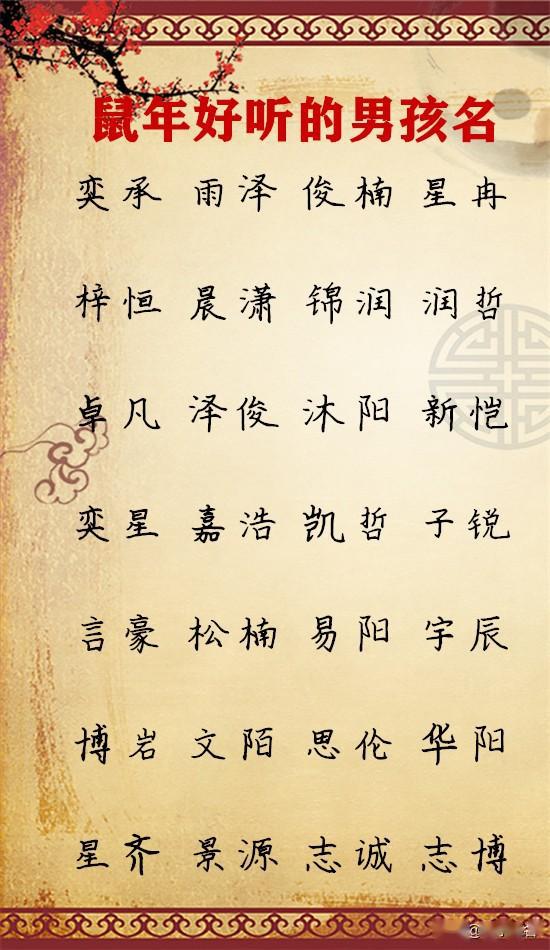 鼠年好听的男孩名
奕承 雨泽 俊楠 星冉
梓恒 晨潇 锦润 润哲
卓凡 泽俊 沐阳 新恺
奕星 嘉浩 凯哲 子锐
言豪 松楠 易阳 宇辰
博岩 文陌 思伦 华阳
星齐 景源 志诚 志博